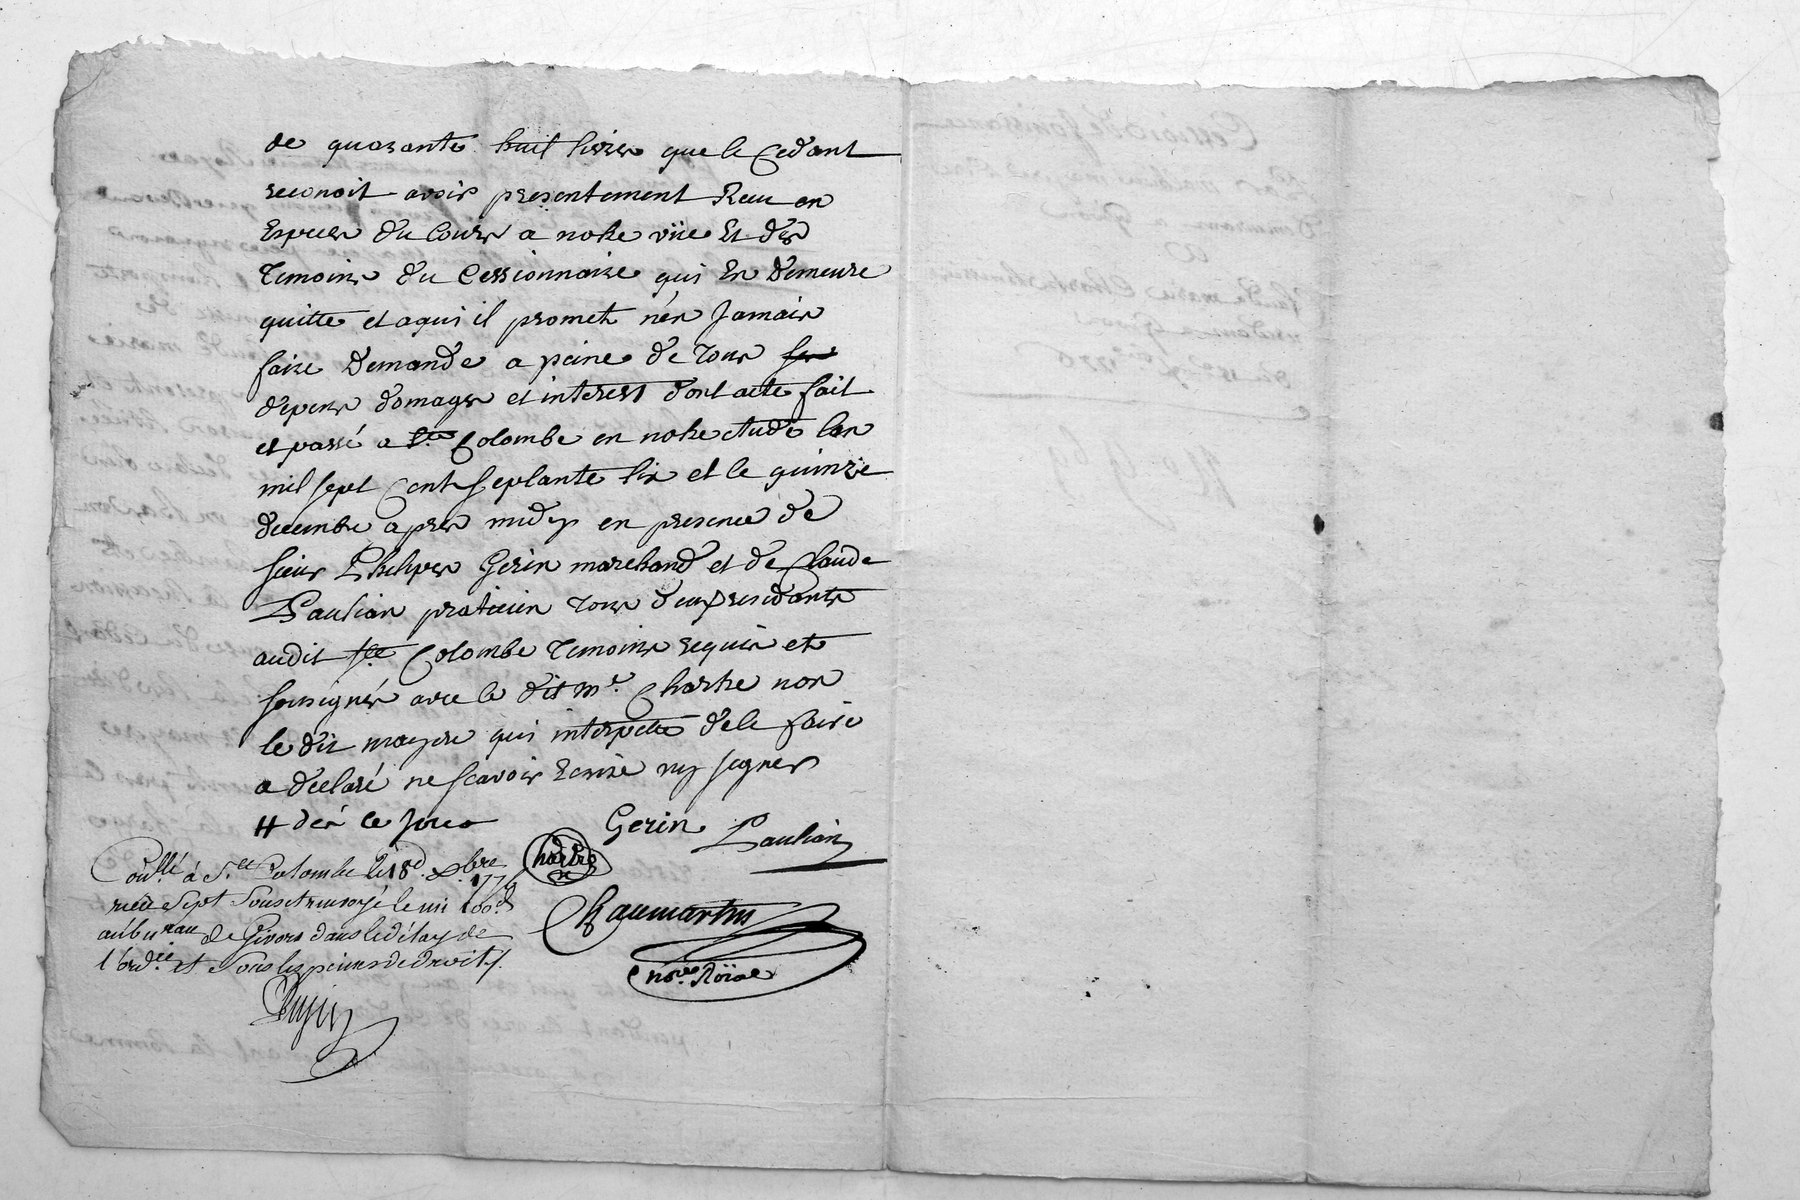 de quarante huit livres que le Cedant
reconoit avoir presentement Recu en
Especes du Cours a notre vüe Et des
Temoins du Cessionnaire qui En Demeure
quitte et aqui il promet n'en Jamais
faire Demande a peine de Tous
depens domages et interest dont acte fait
et passé a Ste Colombe en notre etude lan
mil sept Cent septante six et le quinze
decembre apres midy en presence de
sieur Philipes Gerin marchand et de Claude
Paulian praticien Tous deux residants
audit Ste Colombe Temoins requis et
soussignés avec le dit Mr. Chartre non
le dit mayere qui interpellé de le faire
a declaré ne scavoir Ecrire ny signer
# des ce jour
Gerin Paulian
Chartre
Chaumartin
nore. Röial
Conllé à Ste Colombe le 18d. xbre 1776
reçu sept sous et renvoyé le
au bureau de Givors dans le délay de
l'ordce et sous les peines de droit